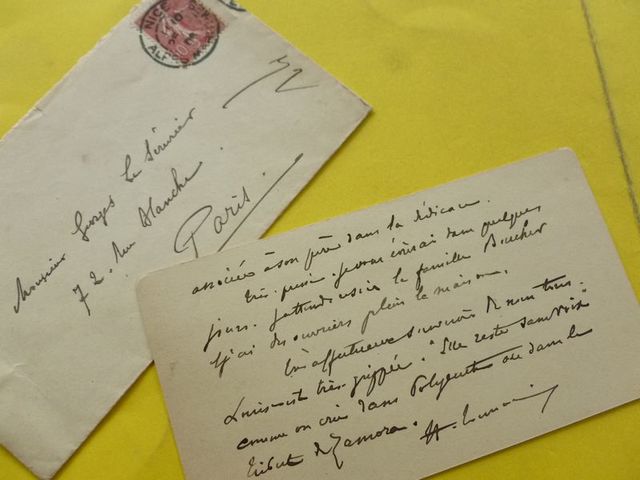 NICE
Monsieur Georges Le Sérurier
72. rue Blanche.
Paris.
associée à son père dans la dédicace.
Très pressé. je vous écrirai dans quelques
jours. J'attends ici la famille
et j'ai des ouvriers plein la maison.
affectueux souvenirs de nous trois.
Louise est très grippée. "Elle reste sans voix"
comme on crie dans Polyeucte ou dans le
Tribut de Zamora.